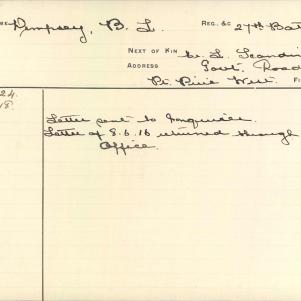 Dempsey, B. L. REG. &c 27th Bat
NEXT OF KIN
ADDRESS Govt. Road
Pt. Pirie West. F
24.
18
Letter sent to Enquirer.
Letter of 8.6.18 returned through
Office.